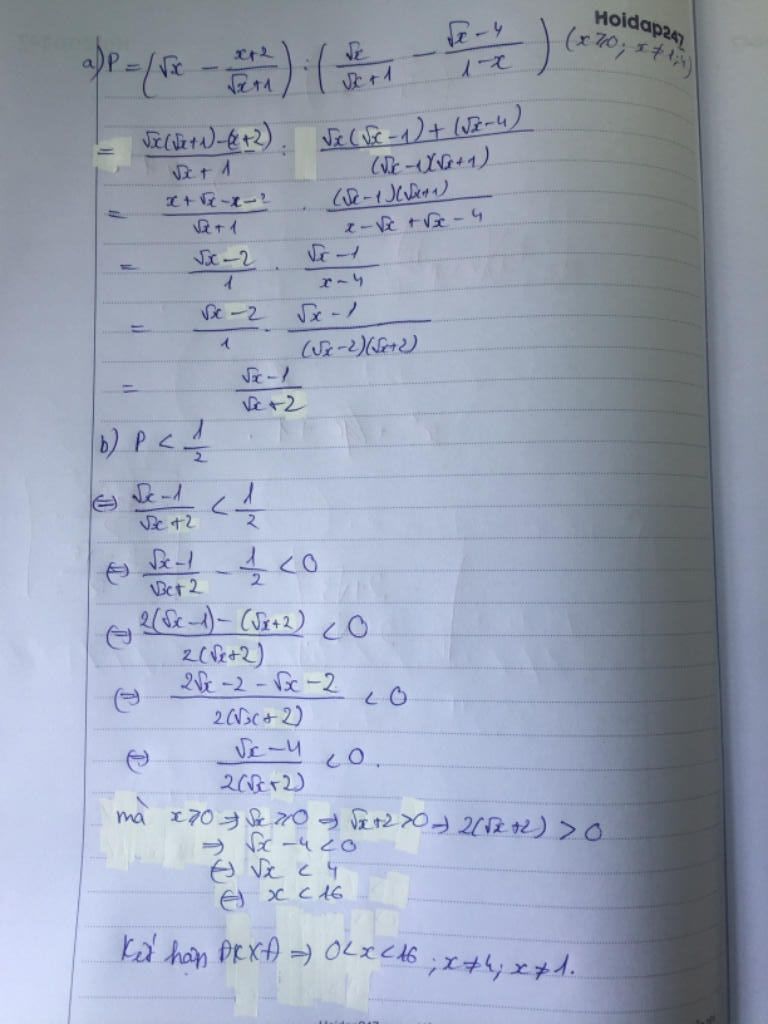 Hoidap247
a) P = (√x − (x+2)/(√x+1)) : (√x/(√x+1) − (√x−4)/(1−x)) (x ≥ 0; x ≠ 1; 4)
= (√x(√x+1)−(x+2))/(√x+1) : (√x(√x−1)+(√x−4))/((√x−1)(√x+1))
= (x+√x−x−2)/(√x+1) . ((√x−1)(√x+1))/(x−√x+√x−4)
= (√x−2)/1 . (√x−1)/(x−4)
= (√x−2)/1 . (√x−1)/((√x−2)(√x+2))
= (√x−1)/(√x+2)
b) P < 1/2
⇔ (√x−1)/(√x+2) < 1/2
⇔ (√x−1)/(√x+2) − 1/2 < 0
⇔ (2(√x−1)−(√x+2))/(2(√x+2)) < 0
⇔ (2√x−2−√x−2)/(2(√x+2)) < 0
⇔ (√x−4)/(2(√x+2)) < 0.
mà x ≥ 0 ⇒ √x ≥ 0 ⇒ √x+2 > 0 ⇒ 2(√x+2) > 0
⇒ √x −4 < 0
⇔ √x < 4
⇔ x < 16
Kết hợp ĐKXĐ ⇒ 0 < x < 16 ; x ≠ 4; x ≠ 1.